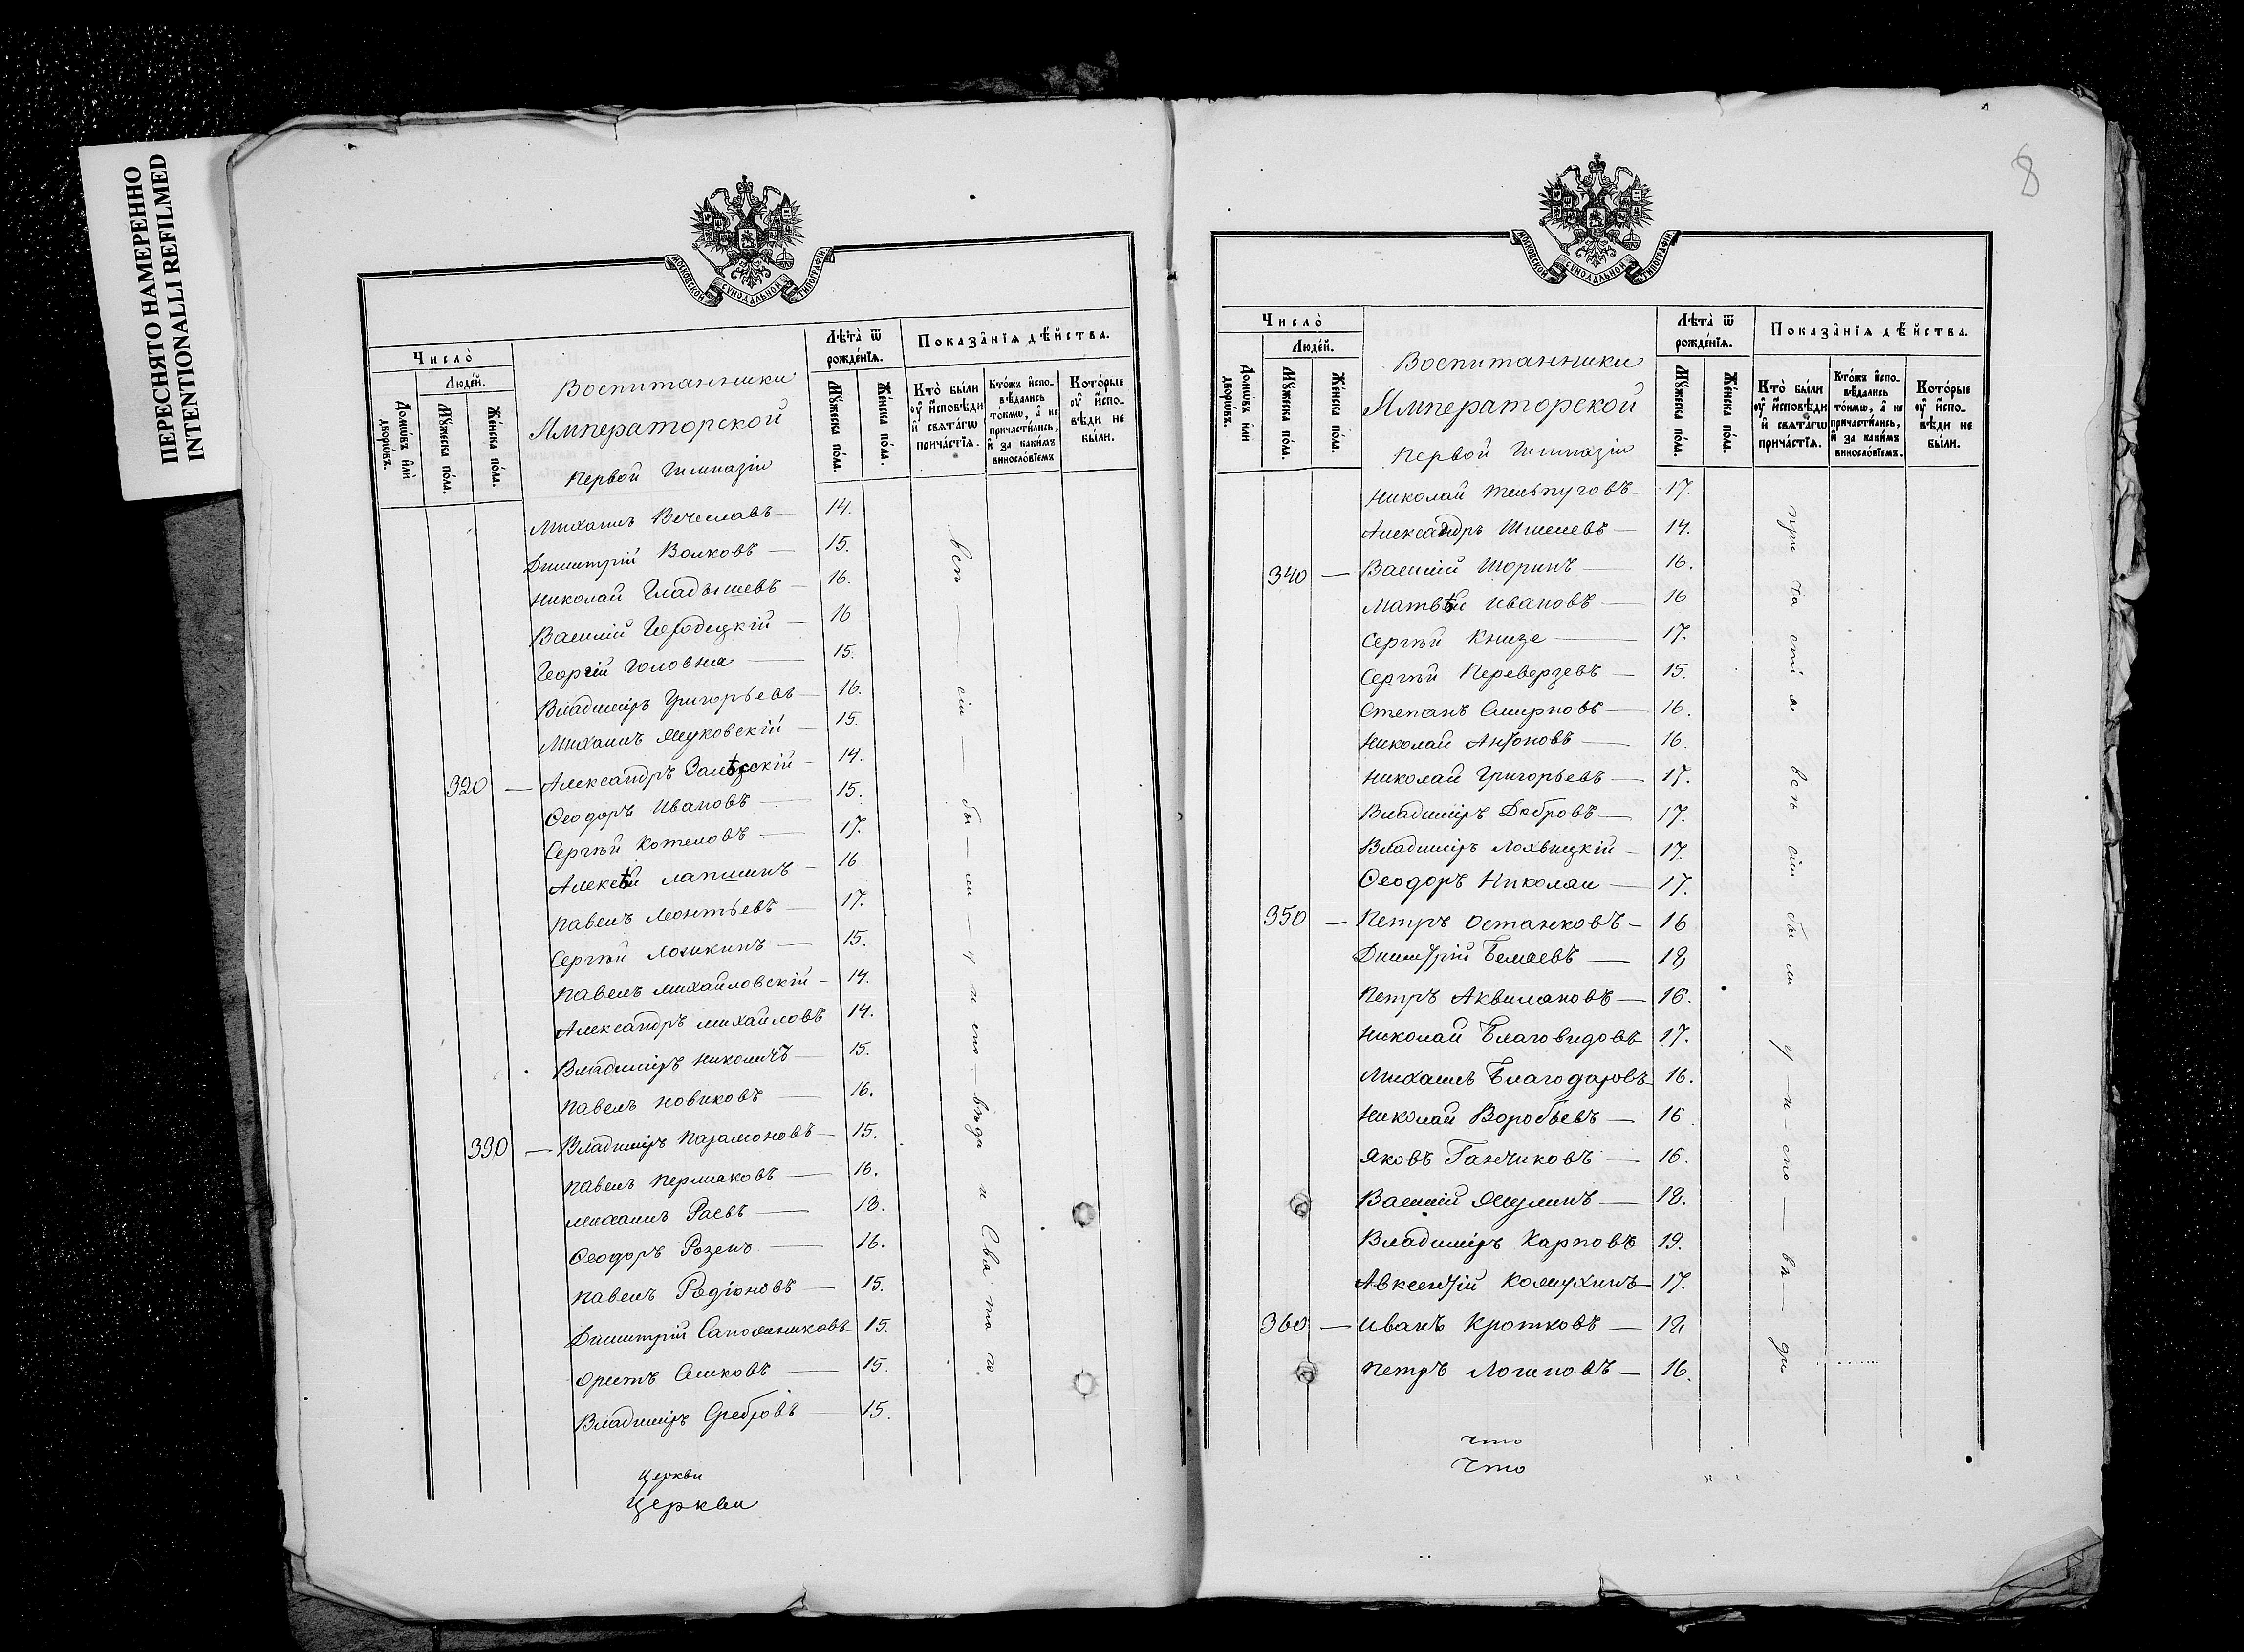 ПЕРЕСНЯТО НАМЕРЕННО
INTENTIONALLI REFILMED
МОСКОВСКОЙ СѴНОДАЛЬНОЙ ТИПОГРАФІИ
Число̀
Люде́й.
Домѡ́въ и҆лѝ дворѡ́въ.
Мꙋ́жеска по́ла.
Же́нска по́ла.
Воспитанники
Императорской
Первой Гимназіи
Лѣ́та ѿ рожде́нїѧ.
Мꙋ́жеска по́ла.
Же́нска по́ла.
Показа̂нїѧ дѣ́йства.
Кто̀ бы́ли оу҆ и҆сповѣ́ди и҆ свѧта́гѡ прича́стїѧ.
Кто́жъ и҆сповѣ́дались то́кмѡ, а҆ не причасти́лись, и҆ за каки́мъ винослові́емъ
Кото́рые оу҆ и҆сповѣ́ди не бы́ли.
Михаилъ Вечеславъ — 14.
Димитрій Волковъ — 15.
Николай Гладышевъ — 16.
Василій Городецкій — 16
Георгій Головня — 15.
Владиміръ Григорьевъ — 16.
Михаилъ Жуковскій — 15.
320 — Александръ Залѣсскій — 14.
Ѳеодоръ Ивановъ — 15.
Сергѣй Котеловъ — 17.
Алексѣй Лапшинъ — 16.
Павелъ Леонтьевъ — 17.
Сергѣй Лошкинъ — 15.
Павелъ Михайловскій — 14.
Александръ Михайловъ 14.
Владиміръ Николичъ — 15.
Павелъ Новиковъ — 16.
330 — Владиміръ Парамоновъ — 15.
Павелъ Пермяковъ — 16.
Михаилъ Раевъ — 18.
Ѳеодоръ Розенъ — 16.
Павелъ Родіоновъ — 15.
Димитрій Сапожниковъ 15.
Орестъ Симковъ — 15.
Владиміръ Сребровъ — 15.
всѣ — сіи — бы — ли — у и спо — вѣди и Свя та го
Церкви
Церкви
8
МОСКОВСКОЙ СѴНОДАЛЬНОЙ ТИПОГРАФІИ
Число̀
Люде́й.
Домѡ́въ и҆лѝ дворѡ́въ.
Мꙋ́жеска по́ла.
Же́нска по́ла.
Воспитанники
Императорской
Первой Гимназіи
Лѣ́та ѿ рожде́нїѧ.
Мꙋ́жеска по́ла.
Же́нска по́ла.
Показа̂нїѧ дѣ́йства.
Кто̀ бы́ли оу҆ и҆сповѣ́ди и҆ свѧта́гѡ прича́стїѧ.
Кто́жъ и҆сповѣ́дались то́кмѡ, а҆ не причасти́лись, и҆ за каки́мъ винослові́емъ.
Кото́рые оу҆ и҆сповѣ́ди не бы́ли.
Николай — 17.
Александръ Шмелевъ — 14.
340 — Василій Шоринъ — 16.
Матвѣй Ивановъ — 16
Сергѣй Книзе — 17.
Сергѣй Переверзевъ — 15.
Степанъ Смирновъ — 16.
Николай Антоновъ — 16.
Николай Григорьевъ — 17.
Владиміръ Добровъ — 17.
Владиміръ Лохвицкій — 17.
Ѳеодоръ Николаи — 17.
350 — Петръ Останковъ — 16
Димитрій Беляевъ — 18
Петръ Аквилановъ — 16.
Николай Благовидовъ 17.
Михаилъ Благодаровъ 16.
Николай Воробьевъ — 16
Яковъ Ганчиковъ — 16.
Василій Жулинъ — 18.
Владиміръ Карповъ 19.
Авксентій Кожухинъ — 17.
360 — Иванъ Кротковъ — 18
Петръ Логиновъ — 16.
при ча сті я всѣ сіи бы ли у — и — спо — вѣ — ди
что
Что